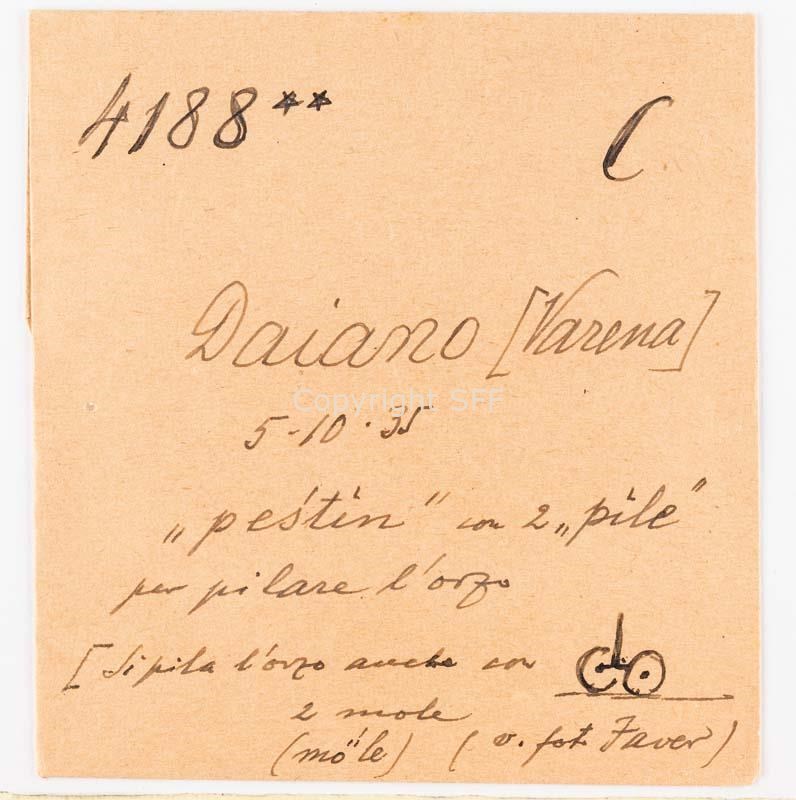 4188** C
Daiano [Varena]
Copyright SFF
5-10.35
„peśtin" con 2 „pile"
per pilare l'orzo
[Si pila l'orzo anche con
2 mole
(möle) (v. fot Faver)